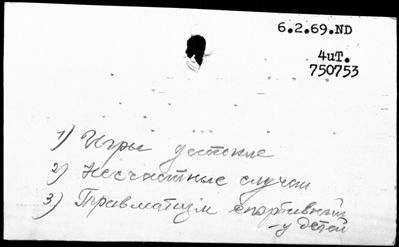 6.2.69.ND
4иТ.
750753
1) Игры детские
2) Несчастные случаи
3) Травматизм спортивный
- у детей